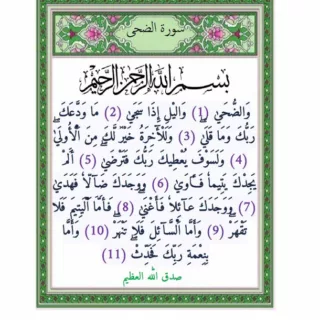 سورة الضحى
بِسْمِ اللَّهِ الرَّحْمَنِ الرَّحِيمِ
وَالضُّحَىٰ (1) وَالَّيْلِ إِذَا سَجَىٰ (2) مَا وَدَّعَكَ
رَبُّكَ وَمَا قَلَىٰ (3) وَلَلْآخِرَةُ خَيْرٌ لَّكَ مِنَ الْأُولَىٰ
(4) وَلَسَوْفَ يُعْطِيكَ رَبُّكَ فَتَرْضَىٰ (5) أَلَمْ
يَجِدْكَ يَتِيمًا فَـَٔاوَىٰ (6) وَوَجَدَكَ ضَآلًّا فَهَدَىٰ
(7) وَوَجَدَكَ عَآئِلًا فَأَغْنَىٰ (8) فَأَمَّا الْيَتِيمَ فَلَا
تَقْهَرْ (9) وَأَمَّا السَّآئِلَ فَلَا تَنْهَرْ (10) وَأَمَّا
بِنِعْمَةِ رَبِّكَ فَحَدِّثْ (11)
صدق الله العظيم